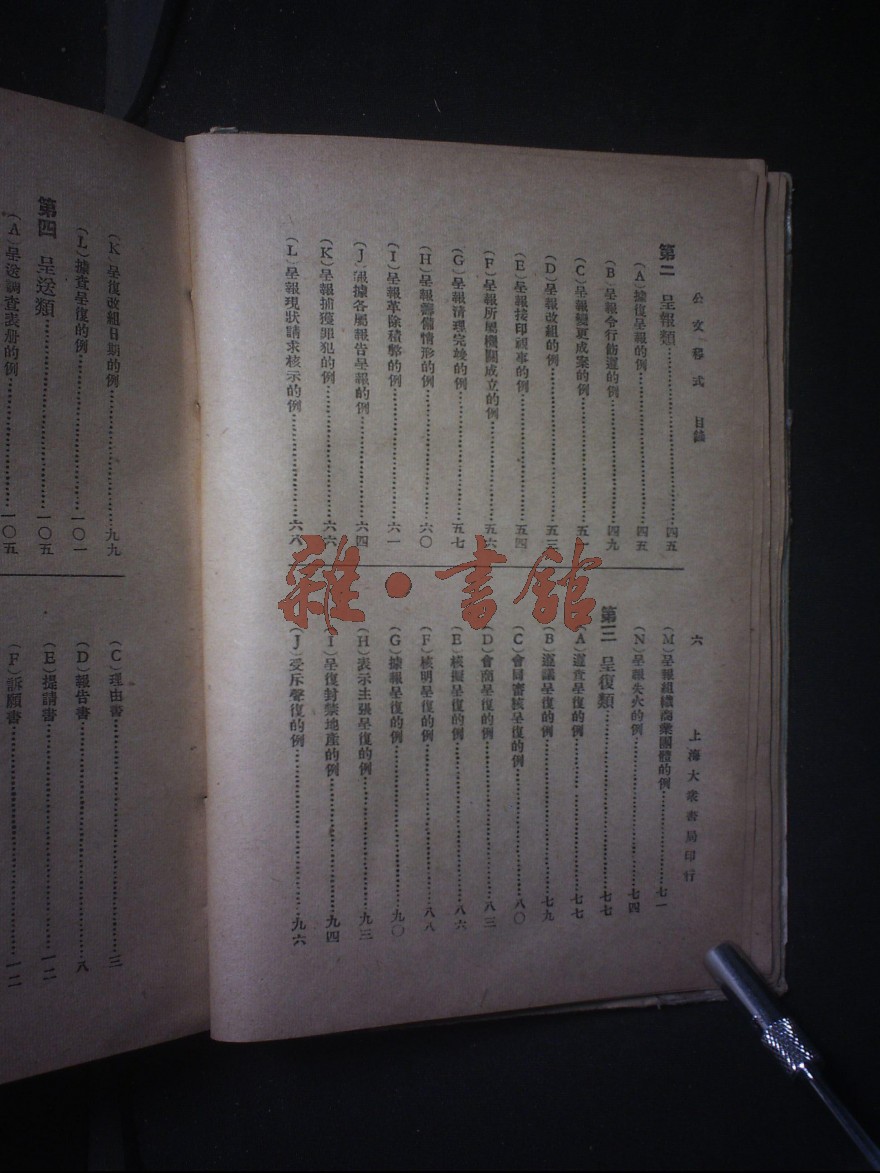 公文程式 目錄
六
上海大衆書局印行
第二 呈報類…………四五
(A)據復呈報的例…………四五
(B)呈報令行飭遵的例…………四九
(C)呈報變更成案的例…………五一
(D)呈報改組的例…………五三
(E)呈報接印視事的例…………五四
(F)呈報所屬機關成立的例…………五六
(G)呈報清理完竣的例…………五七
(H)呈報籌備情形的例…………六〇
(I)呈報革除積弊的例…………六一
(J)根據各屬報告呈報的例…………六四
(K)呈報捕獲罪犯的例…………六六
(L)呈報現狀請求核示的例…………六八
(M)呈報組織商業團體的例…………七一
(N)呈報失火的例…………七四
第三 呈復類…………七七
(A)遵查呈復的例…………七七
(B)遵議呈復的例…………七九
(C)會同審核呈復的例…………八〇
(D)會商呈復的例…………八三
(E)核擬呈復的例…………八六
(F)核明呈復的例…………八八
(G)據報呈復的例…………九〇
(H)表示主張呈復的例…………九三
(I)呈復封禁地產的例…………九四
(J)受斥聲復的例…………九六
(K)呈復改組日期的例…………九九
(L)據查呈復的例…………一〇一
第四 呈送類…………一〇五
(A)呈送調查表册的例…………一〇五
(C)理由書…………三
(D)報告書…………八
(E)提請書…………一二
(F)訴願書…………一二
雜·書館